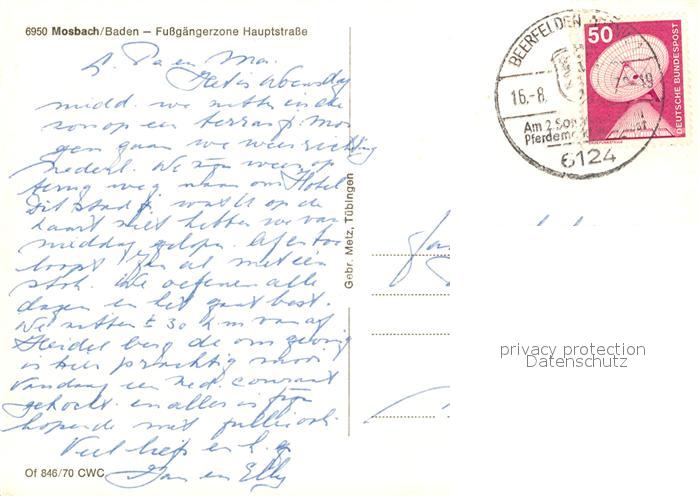 6950 Mosbach/Baden – Fußgängerzone Hauptstraße
L. Pa en Ma.
Het is woensdag
midd. we zitten in de
zon op een terrasje. Mor
gen gaan we weer richting
Nederl. We zijn weer op
terug weg naar ons Hotel
Dit stadje wat U op de
kaart ziet hebben we van
middag gelopen. Af en toe
loopt Jan al met één
stok. We oefenen alle
dagen en het gaat best.
We zitten ± 30 km vanaf
Heidelberg de omgeving
is hier prachtig mooi
Vandaag een Ned. courant
gekocht en alles is fijn
hopende met jullie ook.
Veel liefs en
Jan en Elly
Of 846/70 CWC
Gebr. Metz, Tübingen
BEERFELDEN
16.-8.
-19
Am 2. Son
Pferdema
6124
50
DEUTSCHE BUNDESPOST
privacy protection
Datenschutz